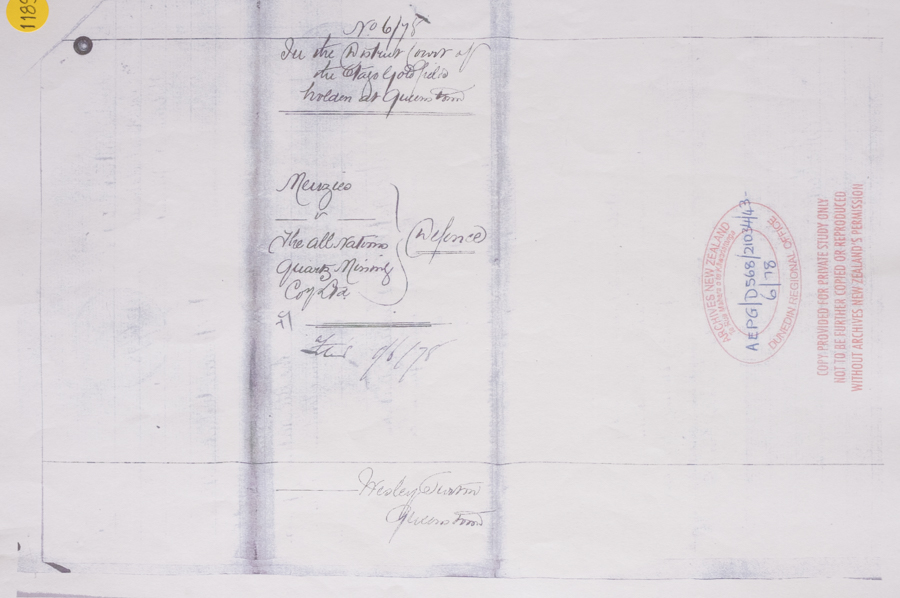 1189
No 6/78
In the District Court of
the Otago Goldfields
holden at Queenstown
Menzies
v
The All Nations
Quartz Mining
Coy Ltd
Defence
6/78
Wesley Turton
Queenstown
ARCHIVES NEW ZEALAND
DUNEDIN REGIONAL OFFICE
AEPG/D568/21034/43-
6/78
COPY PROVIDED FOR PRIVATE STUDY ONLY
NOT TO BE FURTHER COPIED OR REPRODUCED
WITHOUT ARCHIVES NEW ZEALAND'S PERMISSION